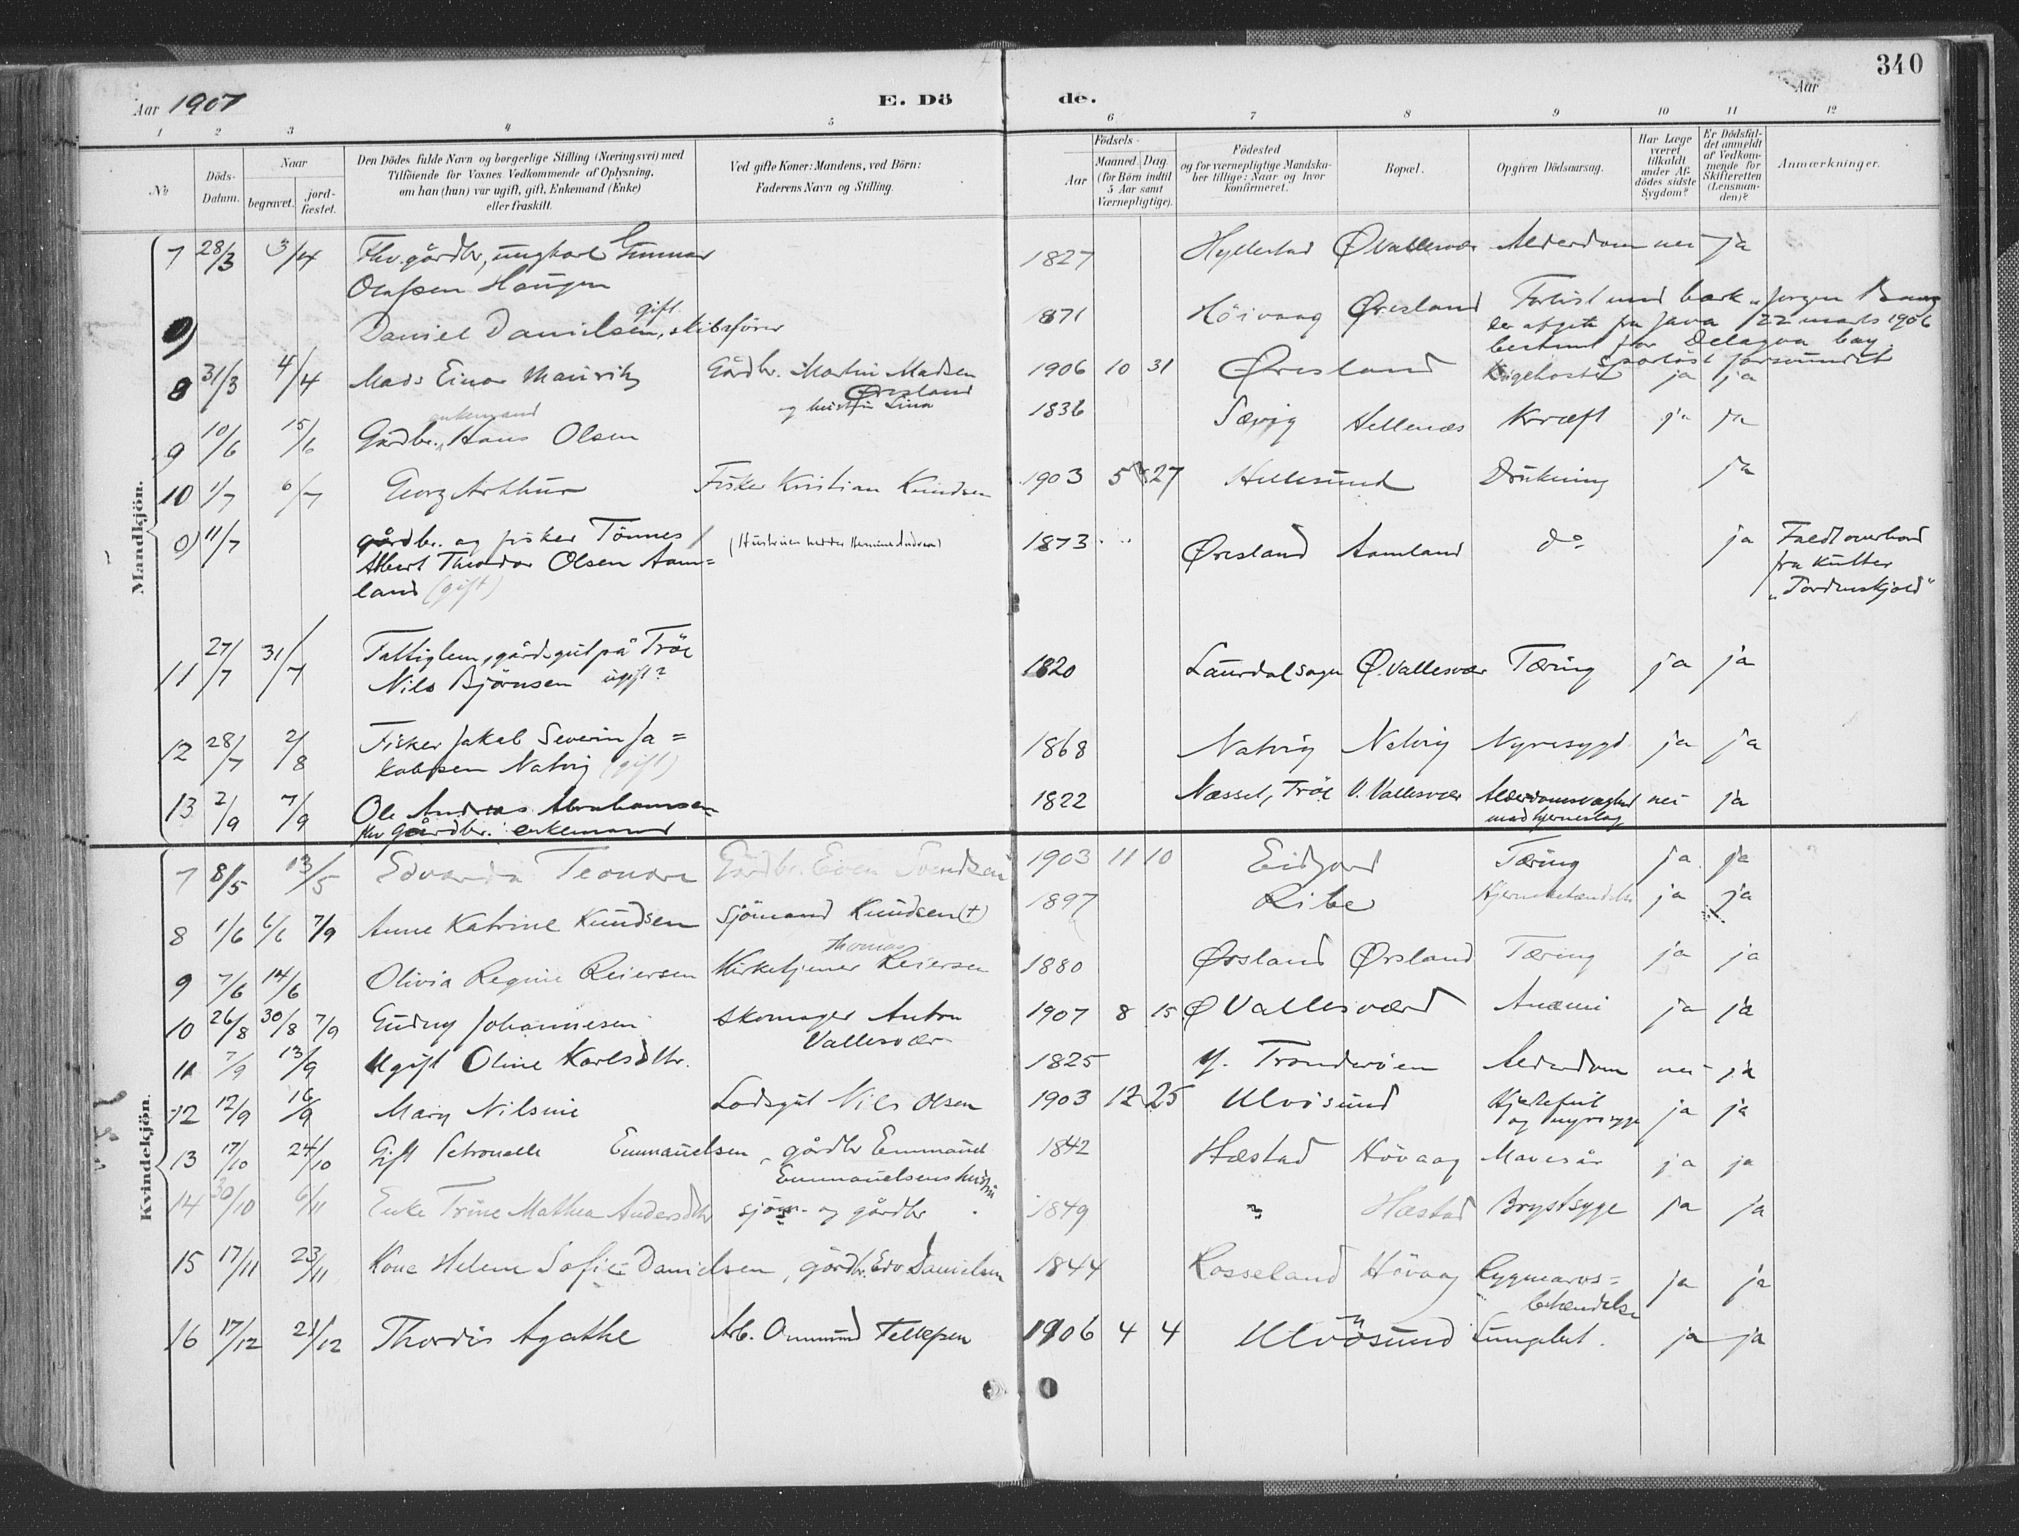 340
Aar 1907 E. Dö de. Aar
1 2 3 4 5 6 7 8 9 10 11 12
№ Döds-Datum. Naar begravet. jordfæstet.
Den Dödes fulde Navn og borgerlige Stilling (Næringsvei) med
Tilföiende for Voxnes Vedkommende af Oplysning,
om han (hun) var ugift, gift, Enkemand (Enke)
eller fraskilt.
Ved gifte Koner: Mandens, ved Börn:
Faderens Navn og Stilling.
Födsels-
Aar Maaned. Dag
(for Börn indtil
5 Aar samt
Værnepligtige).
Födested
og for værnepligtige Mandska-
ber tillige: Naar og hvor
konfirmeret.
Bopæl.
Opgiven Dödsaarsag.
Har Læge
været
tilkaldt
under Af-
dödes sidste
Sygdom?
Er Dödsfal-
det anmeldt
af Vedkom-
mende for
Skifteretten
(Lensman-
den)?
Anmærkninger.
Mandkjön.
7 28/3 3/4 Fhv. gårdbr, ungkarl Gunnar 1827 Hyllestad Ø Vallesvær Alderdom nei ja
Olafsen Haugen
0) Daniel Danielsen, gift, skibsfører 1871 Höivaag Øresland Forlist med bark "Jørgen Bang
der afgik fra Java 22 marts 1906
bestemt for Delagoa bay.
Sporløst forsvundet
8 31/3 4/4 Mads Einar Mauritz Gårdbr. Martin Madsen 1906 10 31 Øresland Kighoste ja ja
Øresland
og hustru Lina
9 10/6 15/6 Gårdbr. enkemand Hans Olsen 1836 Sævig Hellenæs Kræft ja ja
10 1/7 6/7 Georg Arthur Fisker Kristian Knudsen 1903 5 27 Hellesund Drukning ja
0) 11/7 gårdbr. og fisker Tönnes (Hustruen hedder Hemine Andrea) 1873 Øresland Aamland do ja Faldt overbord
Albert Theodor Olsen Aam= fra Kutter
land (gift) "Tordenskjold"
11 27/7 31/7 Fattiglem, gårdsgut på Tröe 1820 Laurdal sogn Ø. Vallesvær Tæring ja ja
Nils Björnsen ugift?
12 28/7 2/8 Fisker Jakob Severin Ja= 1868 Natvig Natvig Nyresygd. ja ja
kobsen Natvig (gift)
13 2/9 7/9 Ole Andreas Abrahamsen 1822 Næsset, Tröe V. Vallesvær Alderdomssvaghed nei ja
fhv gårdbr. enkemand med hjerneslag
Kvindekjön.
7 8/5 13/5 Edvarda Leonore Gårdbr. Even Svendsen 1903 11 10 Eidjord Tæring ja ja
8 1/6 6/6 7/9 Anne Katrine Knudsen Sjömand Knudsen (+) 1897 Ribe Hjernebetændelse ja ja
9 7/6 14/6 Olivia Regine Reiersen Kirketjener Thomas Reiersen 1880 Ørsland Ørsland Tæring ja ja
10 26/8 30/8 7/9 Gudny Johannesen Skomager Anton 1907 8 15 Ø Vallesværd Anæmi ja ja
Vallesvær
11 7/9 13/9 Ugift Oline Karlsdtr. 1825 Y. Tronderöen Alderdom nei ja
12 12/9 16/9 Mary Nilsine Lodsgut Nils Olsen 1903 12 25 Ulvösund Hjertefeil
og nyresyge ja ja
13 17/10 24/10 Gift Petronelle Emmanuelsen, gårdbr Emmanuel 1842 Hæstad Hövaag Mavesår ja ja
Emmanuelsens hustru
14 30/10 6/11 Enke Trine Mathea Andersdtr sjöm- og gårdbr 1849 " Hæstad Brystsyge ja ja
15 17/11 23/11 Kone Helene Sofie Danielsen, gårdbr. Edv Danielsen 1844 Rosseland Hövaag Rygmarvs=
betændelse ja ja
16 17/12 21/12 Thordis Agathe Arb. Ommund Tellefsen 1906 4 4 Ulvösund Lungebet. ja ja